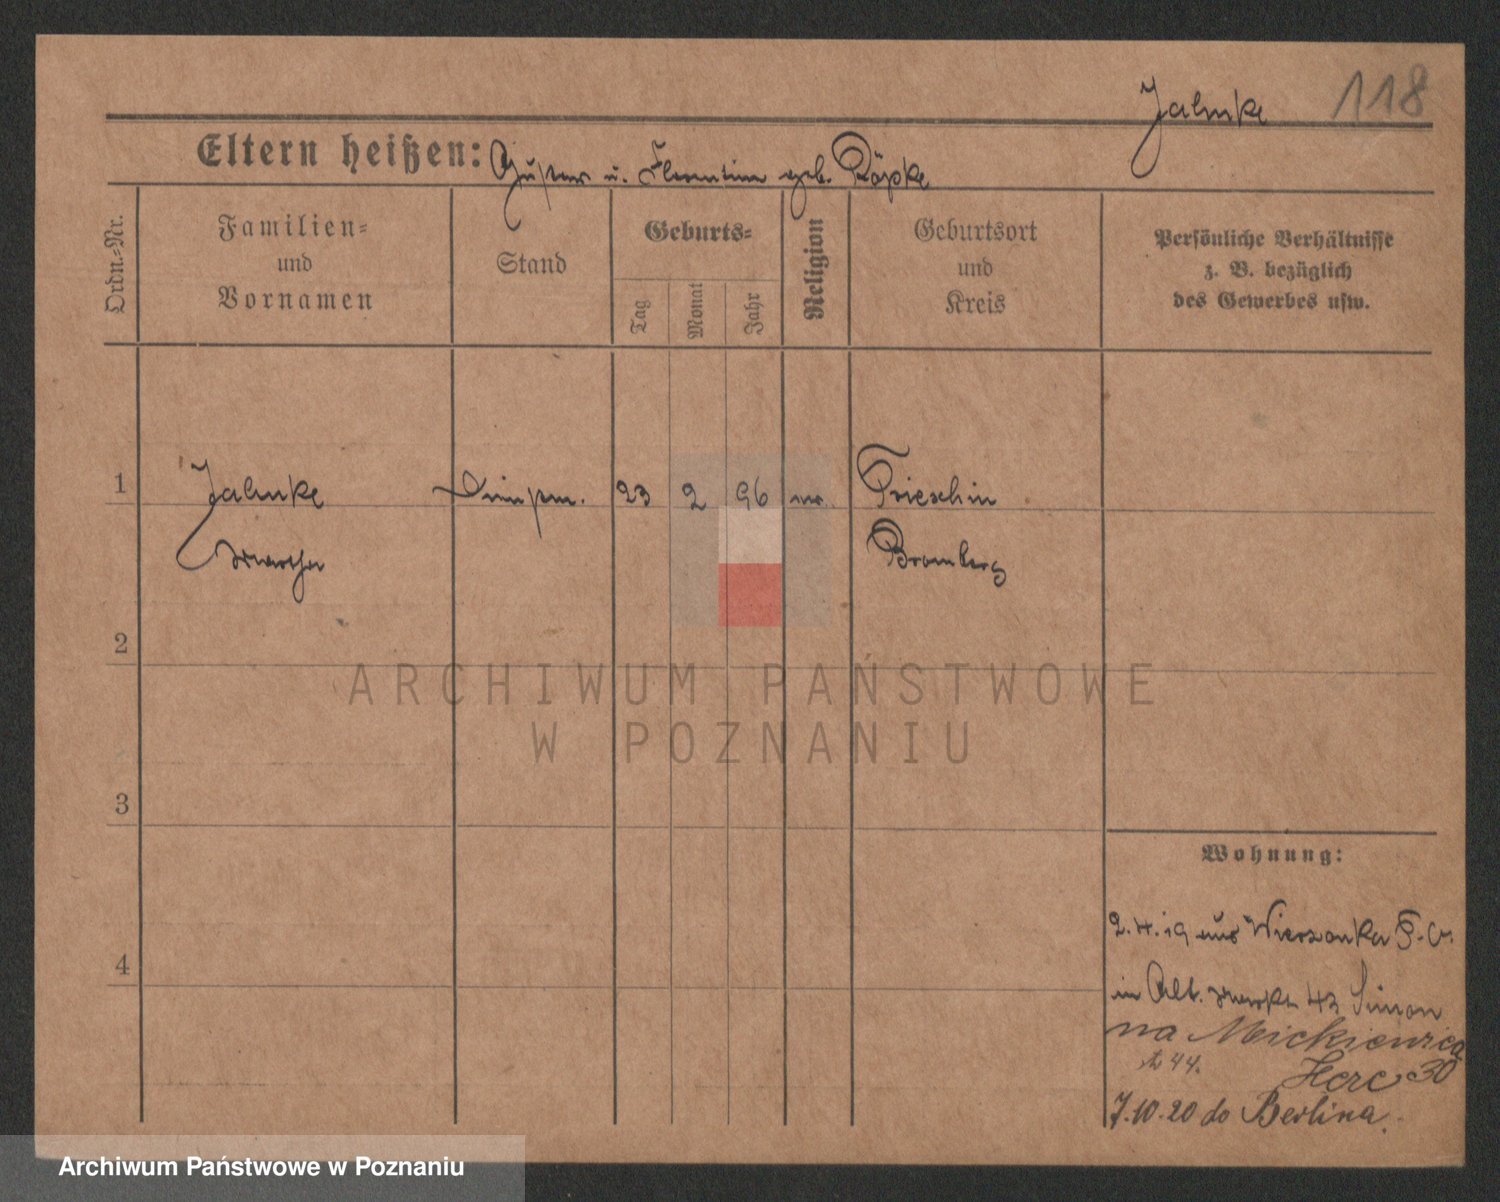 Jahnke 118
Eltern heißen: Gustav u. Florentine geb. Röpke
Ordn.-Nr.
Familien-
und
Vornamen
Stand
Geburts-
Tag
Monat
Jahr
Religion
Geburtsort
und
Kreis
Persönliche Verhältnisse
z. B. bezüglich
des Gewerbes usw.
1 Jahnke 23 2 96
Martha Bromberg
2
3
4
Wohnung:
2.4.19 aus Wierzonka
in Alt. Markt 43 Simon
na Mickiewicza
44. 30
7.10.20 do Berlina.
ARCHIWUM PAŃSTWOWE
W POZNANIU
Archiwum Państwowe w Poznaniu